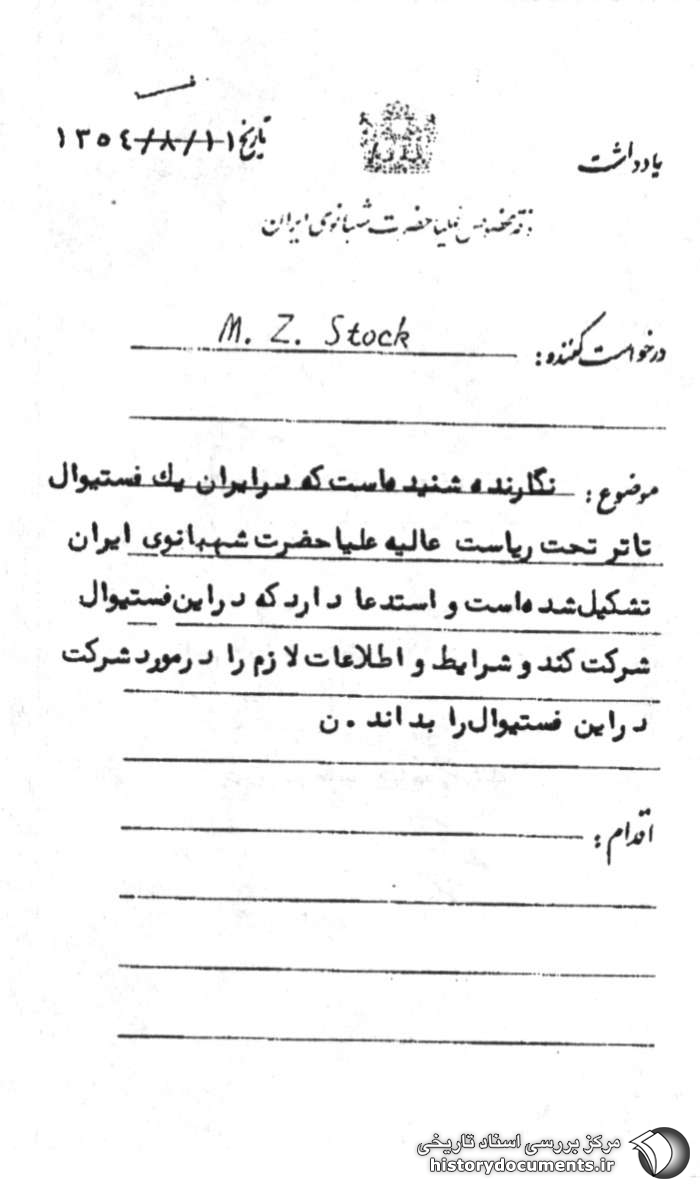 یادداشت
تاریخ ۱۳۵۴/۸/۱۱
دفتر مخصوص علیاحضرت شهبانوی ایران
درخواست کننده: M. Z. Stock
موضوع: نگارنده شنیده‌است که در ایران یک فستیوال
تاتر تحت ریاست عالیه علیاحضرت شهبانوی ایران
تشکیل شده‌است و استدعا دارد که در این فستیوال
شرکت کند و شرایط و اطلاعات لازم را در مورد شرکت
در این فستیوال را بداند . ن
اقدام:
مرکز بررسی اسناد تاریخی
historydocuments.ir